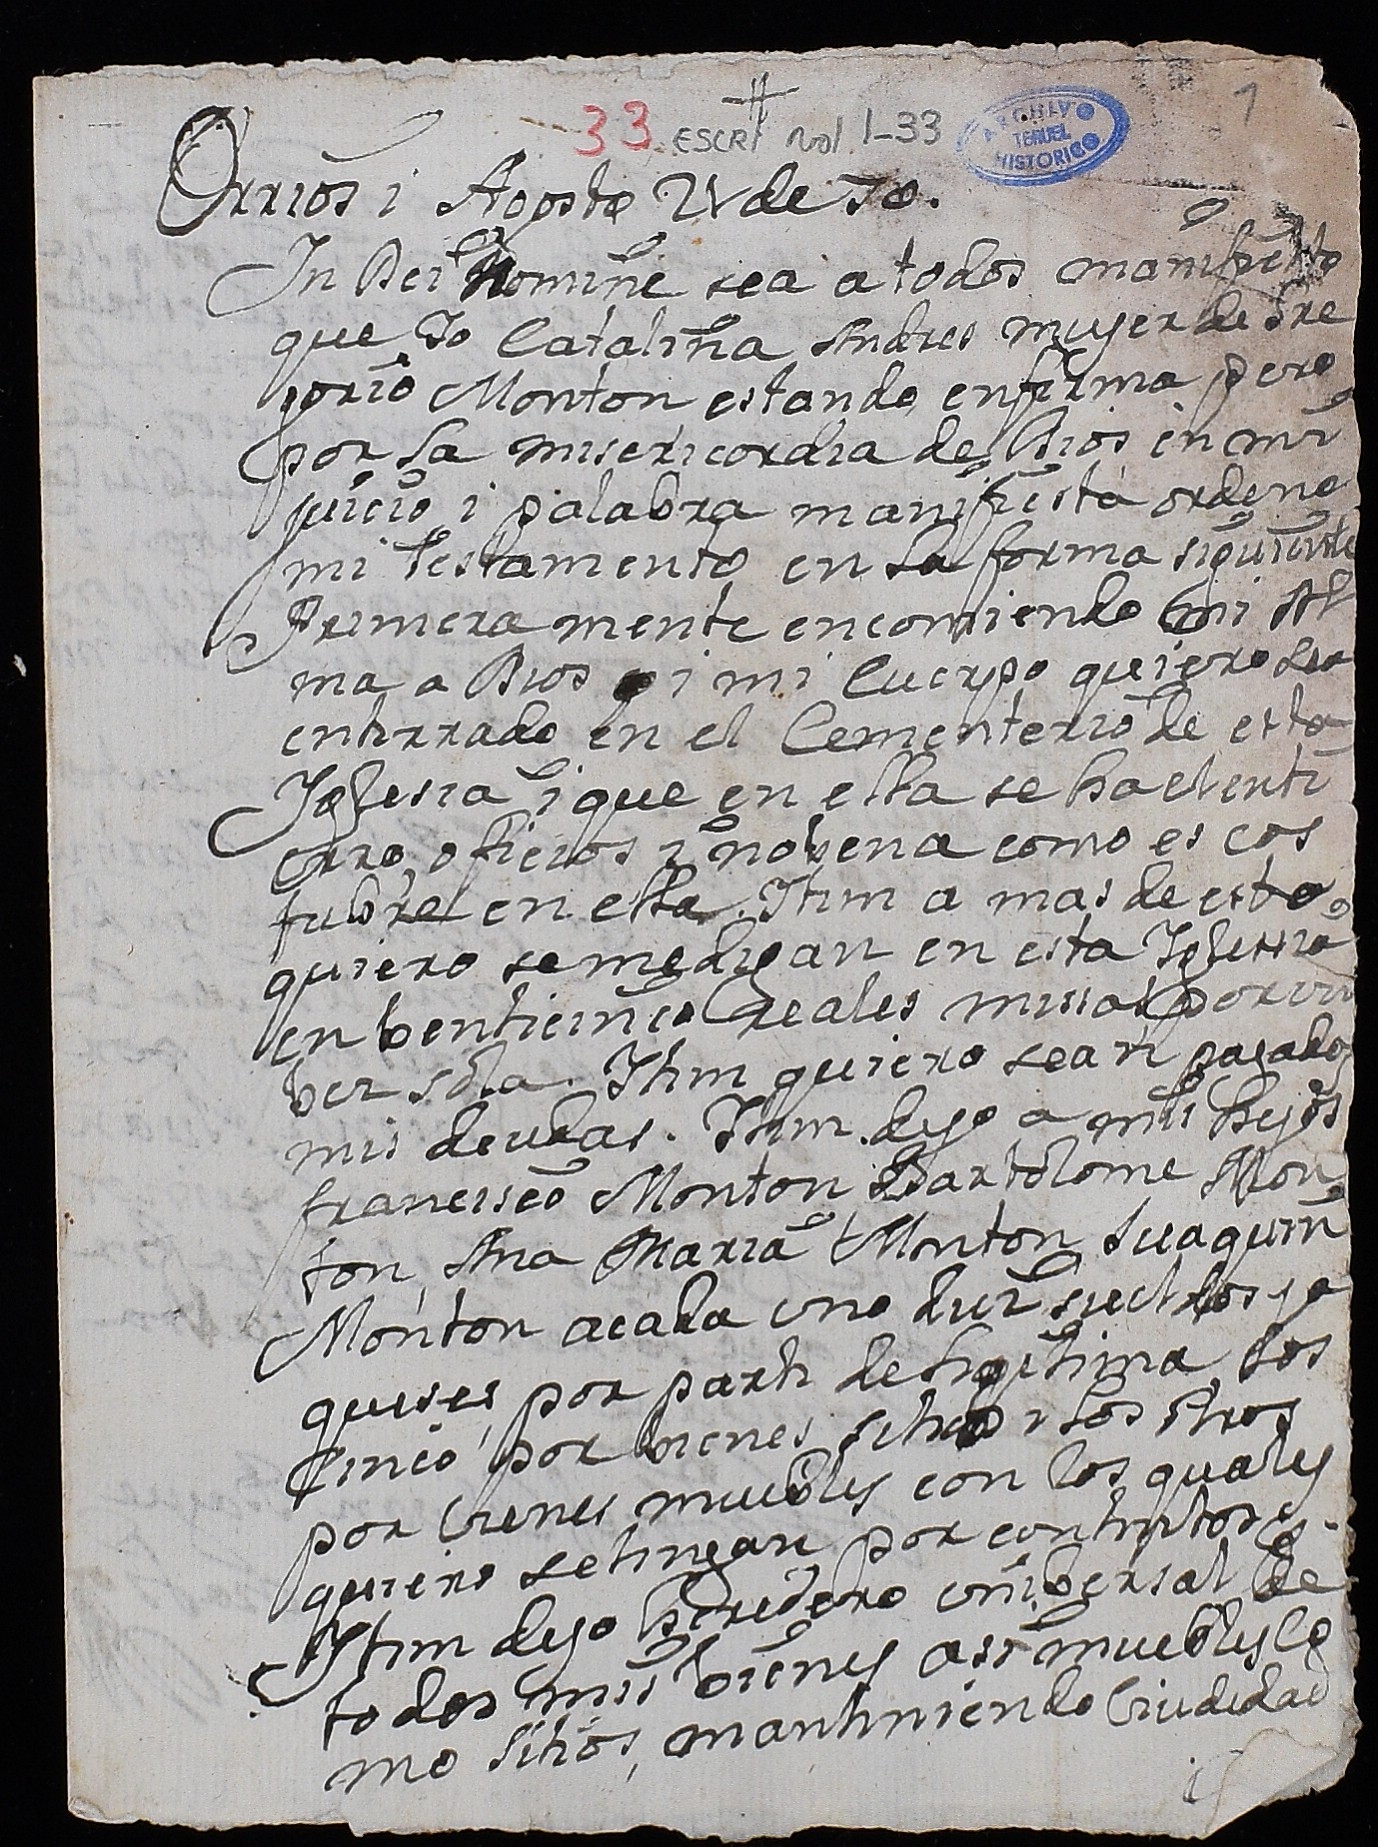 33 ESCRT Not 1-33
ARCHIVO
TERUEL
HISTORICO
1
Orrios i Agosto 21 de 50.
In Dei Nomine sea a todos manifiesto
que Jo Catalina Andres muger de Gre
gorio Monton estando enferma pero
por la misericordia de Dios en mi
juicio i palabra manifiesta ordeno
mi testamento en la forma siguiente
Primera mente encomiendo mi Al
ma a Dios i mi Cuerpo quiero sea
enterrado en el Cementerio de esta
Iglesia i que en ella se haelenti
erro, oficios i nobena como es cos
tubre en ella. Itim a mas de esto
quiero se me digan en esta Iglesia
en benticinco reales missas por un
bez sola. Itim quiero sean pagados
mis deudas. Itim dejo a mis hijos
francisco Monton Bartolome Mon
ton, Ana Maria Monton Juaquin
Monton acada uno diez sueldos ja
queses, por parte de ligitima, los
cinco por bienes sitios i los otros
por bienes muebles con los quales
quiero se tingan por contintos.
Itim dejo heredero unibersal de
todos mis bienes asi muebles co
mo sitios, mantiniendo biudedad